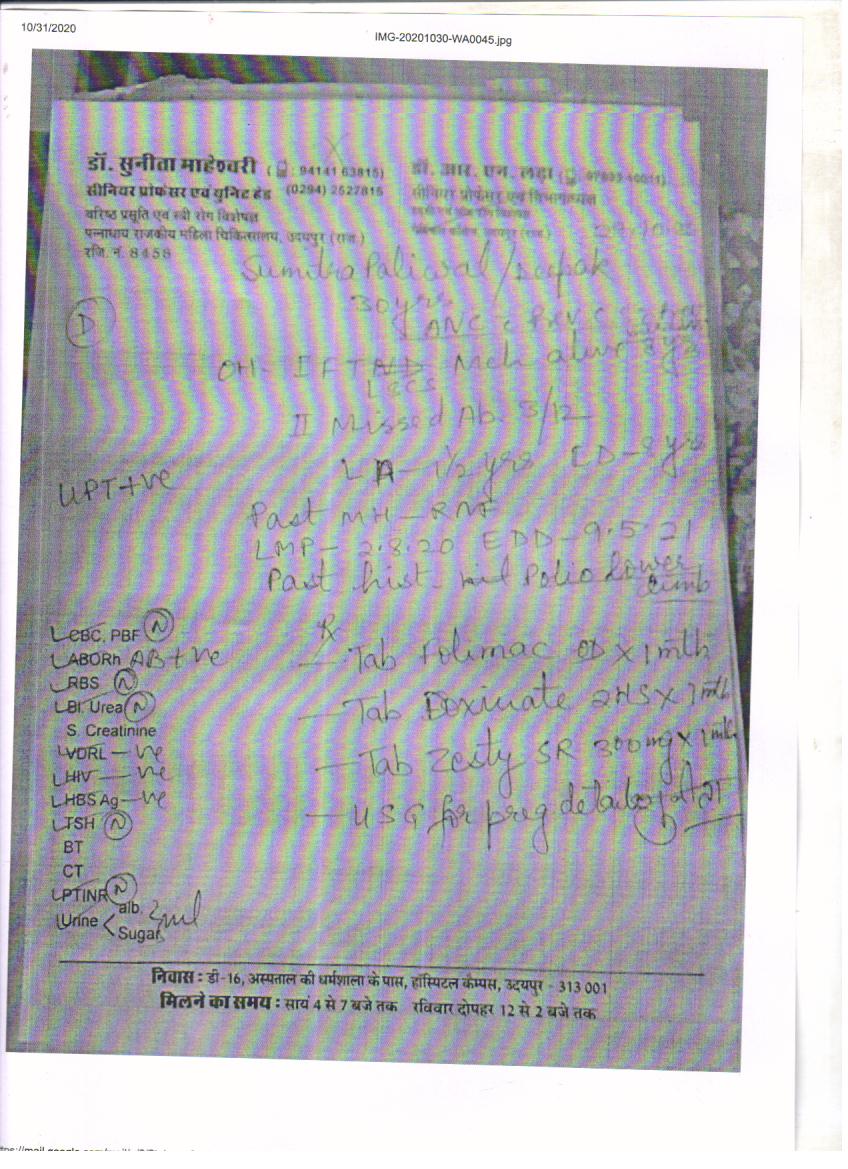 10/31/2020
IMG-20201030-WA0045.jpg
डॉ. सुनीता माहेश्वरी ( : 94141 63815)
सीनियर प्रोफेसर एवं यूनिट हैड (0294) 2527815
वरिष्ठ प्रसूति एवं स्त्री रोग विशेषज्ञ
पन्नाधाय राजकीय महिला चिकित्सालय, उदयपुर (राज.)
रजि. नं. 8458
डॉ. आर. एन. लढ़ा
सीनियर प्रोफेसर एवं विभागाध्यक्ष
Sumitra Paliwal / Deepak
30 yrs
D
ANC
OH- I FT Mch alive 8 yrs
LSCS
II Missed Ab. 3/12
LA - 1 1/2 yrs LD - 8 yrs
UPT +ve
Past MH - RNF
LMP - 2.8.20 EDD - 9.5.21
Past hist - Polio lower
limb
CBC, PBF N
ABORh AB+ve
RBS N
Bl. Urea N
S. Creatinine
VDRL -ve
HIV -ve
HBS Ag -ve
TSH N
BT
CT
PTINR N
Urine < alb. nil
Sugar
Rx
- Tab Folimac OD x 1 mth
- Tab Doxinate 2HS x 1 mth
- Tab Zesty SR 300mg x 1 mth
- USG for preg details
निवास : डी-16, अस्पताल की धर्मशाला के पास, हॉस्पिटल कैम्पस, उदयपुर - 313 001
मिलने का समय : सायं 4 से 7 बजे तक रविवार दोपहर 12 से 2 बजे तक